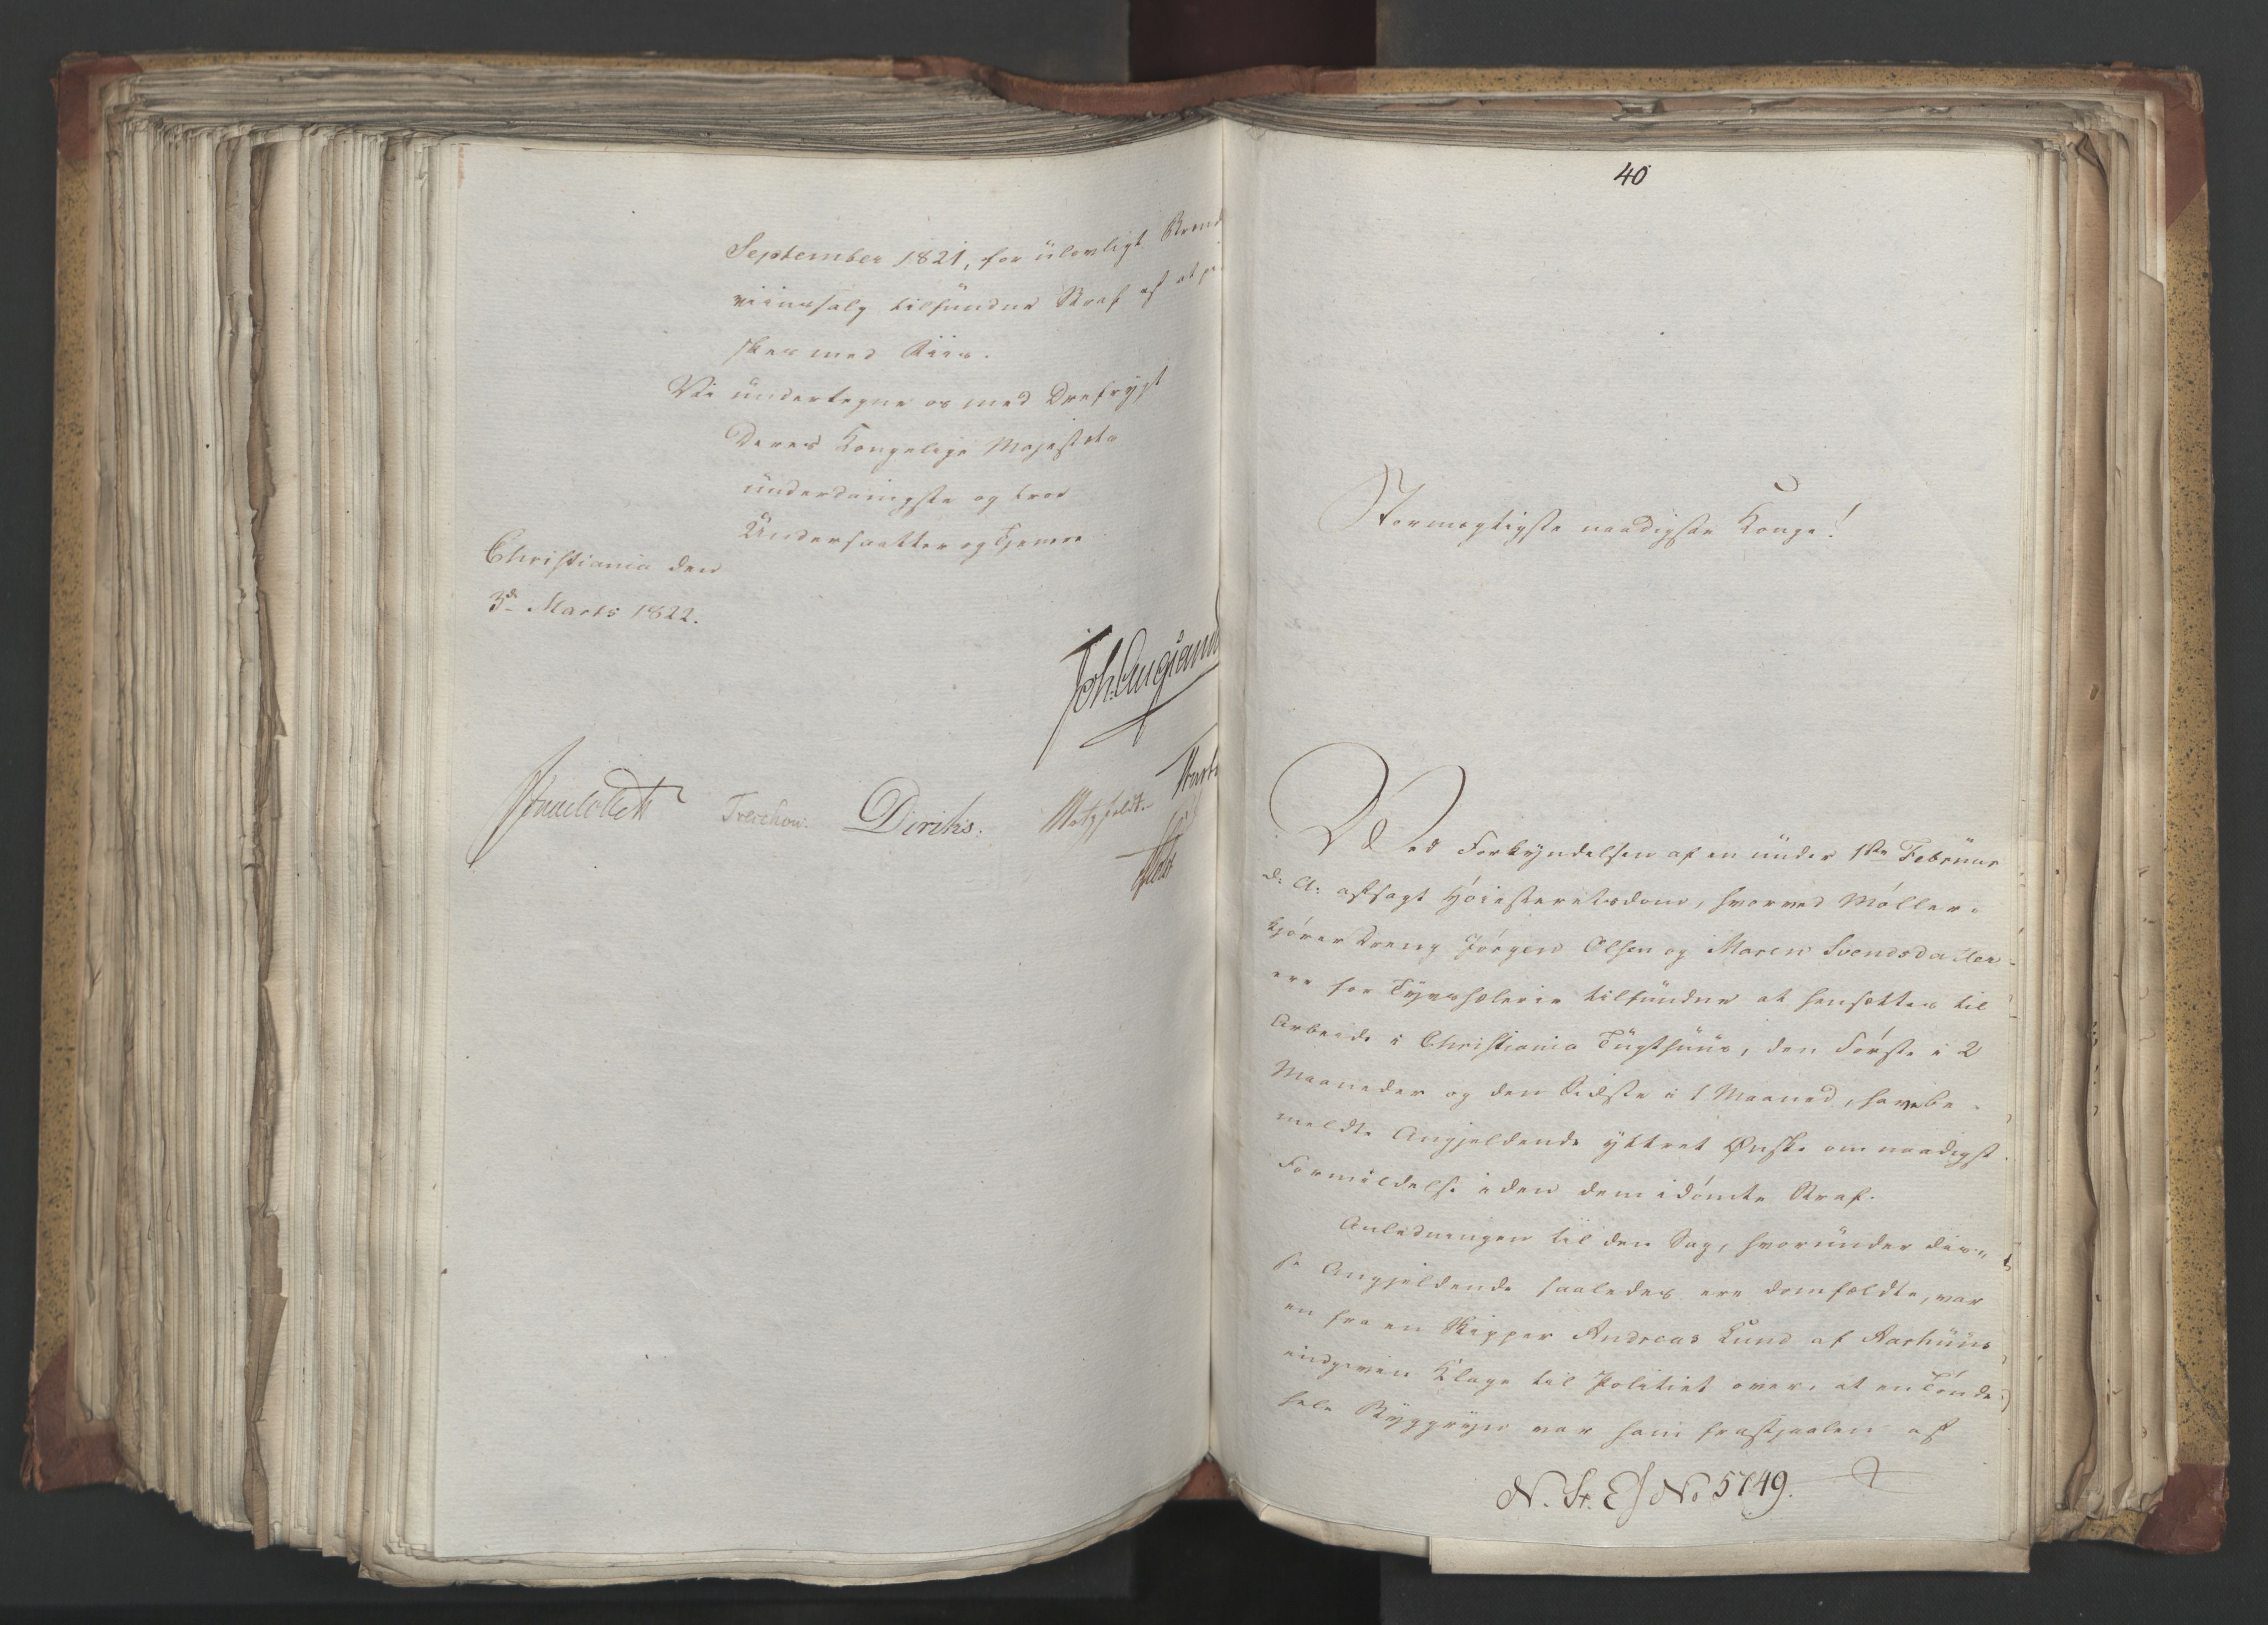 September 1821, for ülovligt Brend
viinssalg tilfündne Straf af at pi
skes med Riis.
Vi ündertegne os med Ærefrygt
Deres Kongelige Majestæts
ünderdanigste og troe
Undersaatter og Tjenere
Christiania den
3de Marts 1822.
Treschow. Diriks. Motzfeldt.
40
Stormægtigste naadigste Konge!
Ved Forkyndelsen af en ünder 1ste Februar
d: A: afsagt Høiesteretsdom, hvorved Møller-
kjører Dreng Jörgen Olsen og Maren Svendsdatter
ere for Tyvshæleri tilfündne at hensættes til
Arbeide i Christiania Tügthüüs, den Første i 2
Maaneder og den Sidste i 1 Maaned, have be-
meldte Angjeldende yttret Ønske om naadigst
Formildelse i den dem idømte Straf.
Anledningen til den Sag, hvoründer dis-
se Angjeldende saaledes ere domfældte, var
en fra en Skipper Andreas Lund af Aarhüüs
indgiven Klage til Politiet over, at en Tønde
hele Byggryn var ham frastjaalen af
N. St. E. No 5749.